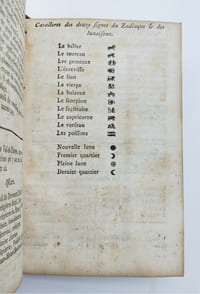 Caracteres des douze signes du Zodiaque & des
lunaisons.
Le bélier
Le taureau
Les gemeaux
L'écrevisse
Le lion
La vierge
La balance
Le scorpion
Le sagittaire
Le capricorne
Le verseau
Les poissons
Nouvelle lune
Premier quartier
Pleine lune
Dernier quartier